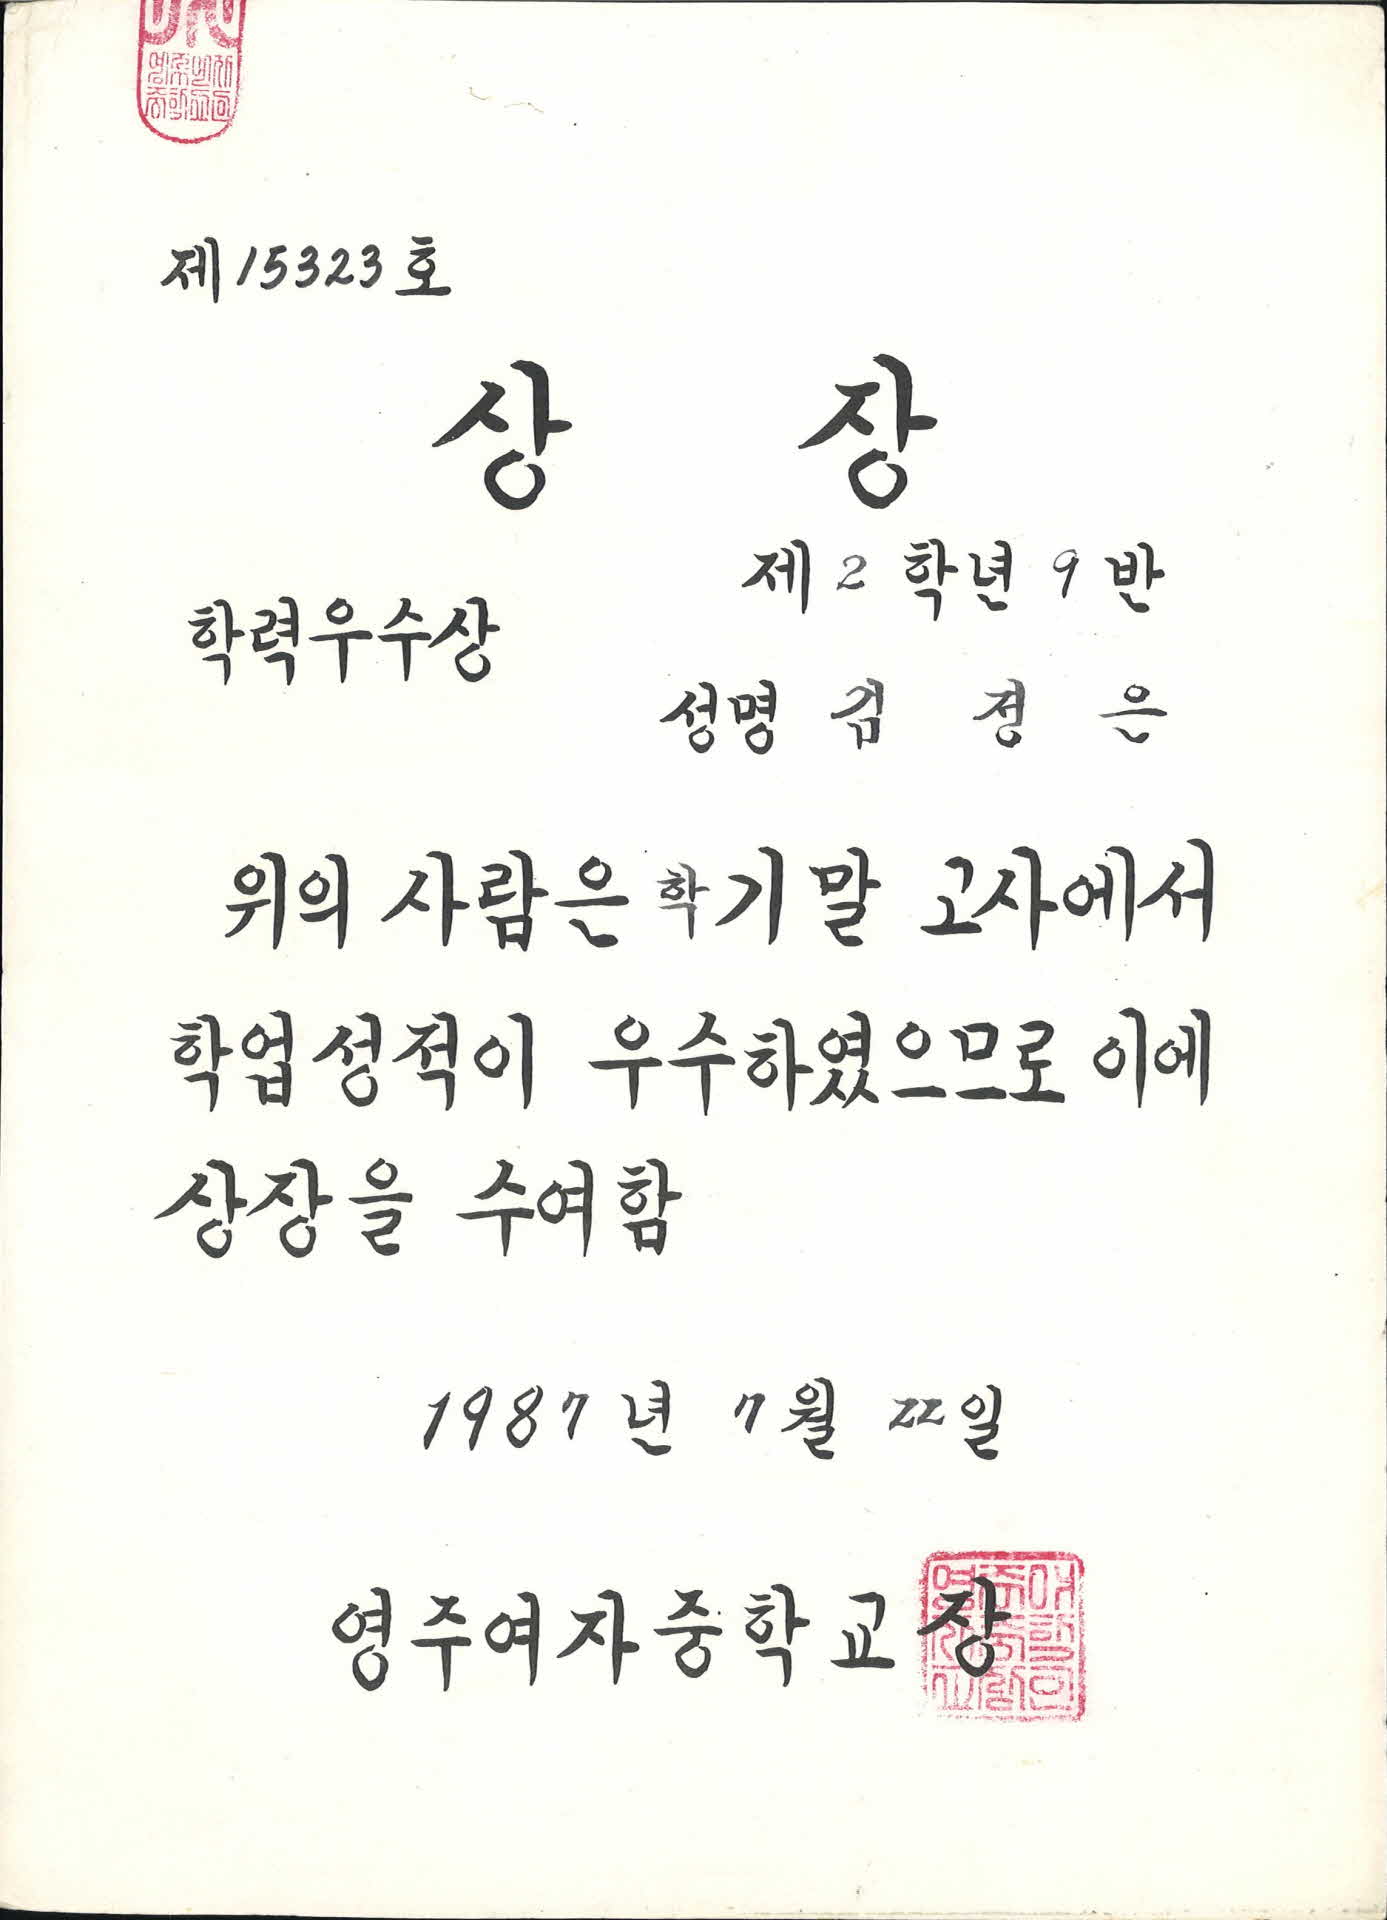 제 15323 호
상 장
제 2 학년 9 반
학력우수상
성명 김 정 은
위의 사람은 학기말 고사에서
학업성적이 우수하였으므로 이에
상장을 수여함
1987 년 7 월 22 일
영주여자중학교장